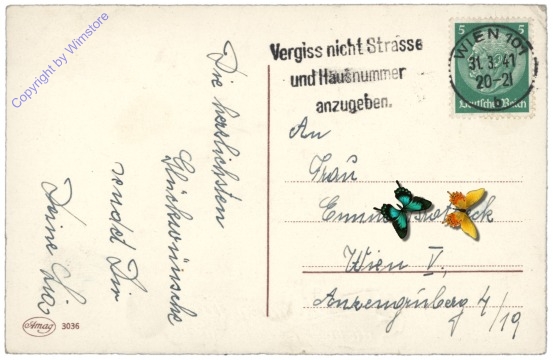 Copyright by Wimstore
Die herzlichsten
Glückwünsche
sendet Dir
Deine Lia
Amag 3036
Vergiss nicht Strasse
und Hausnummer
anzugeben.
WIEN 101
31.3.41
20-21
b
5 5
Deutsches Reich
An
Frau
Wien V,
Anzengruberg 4/19